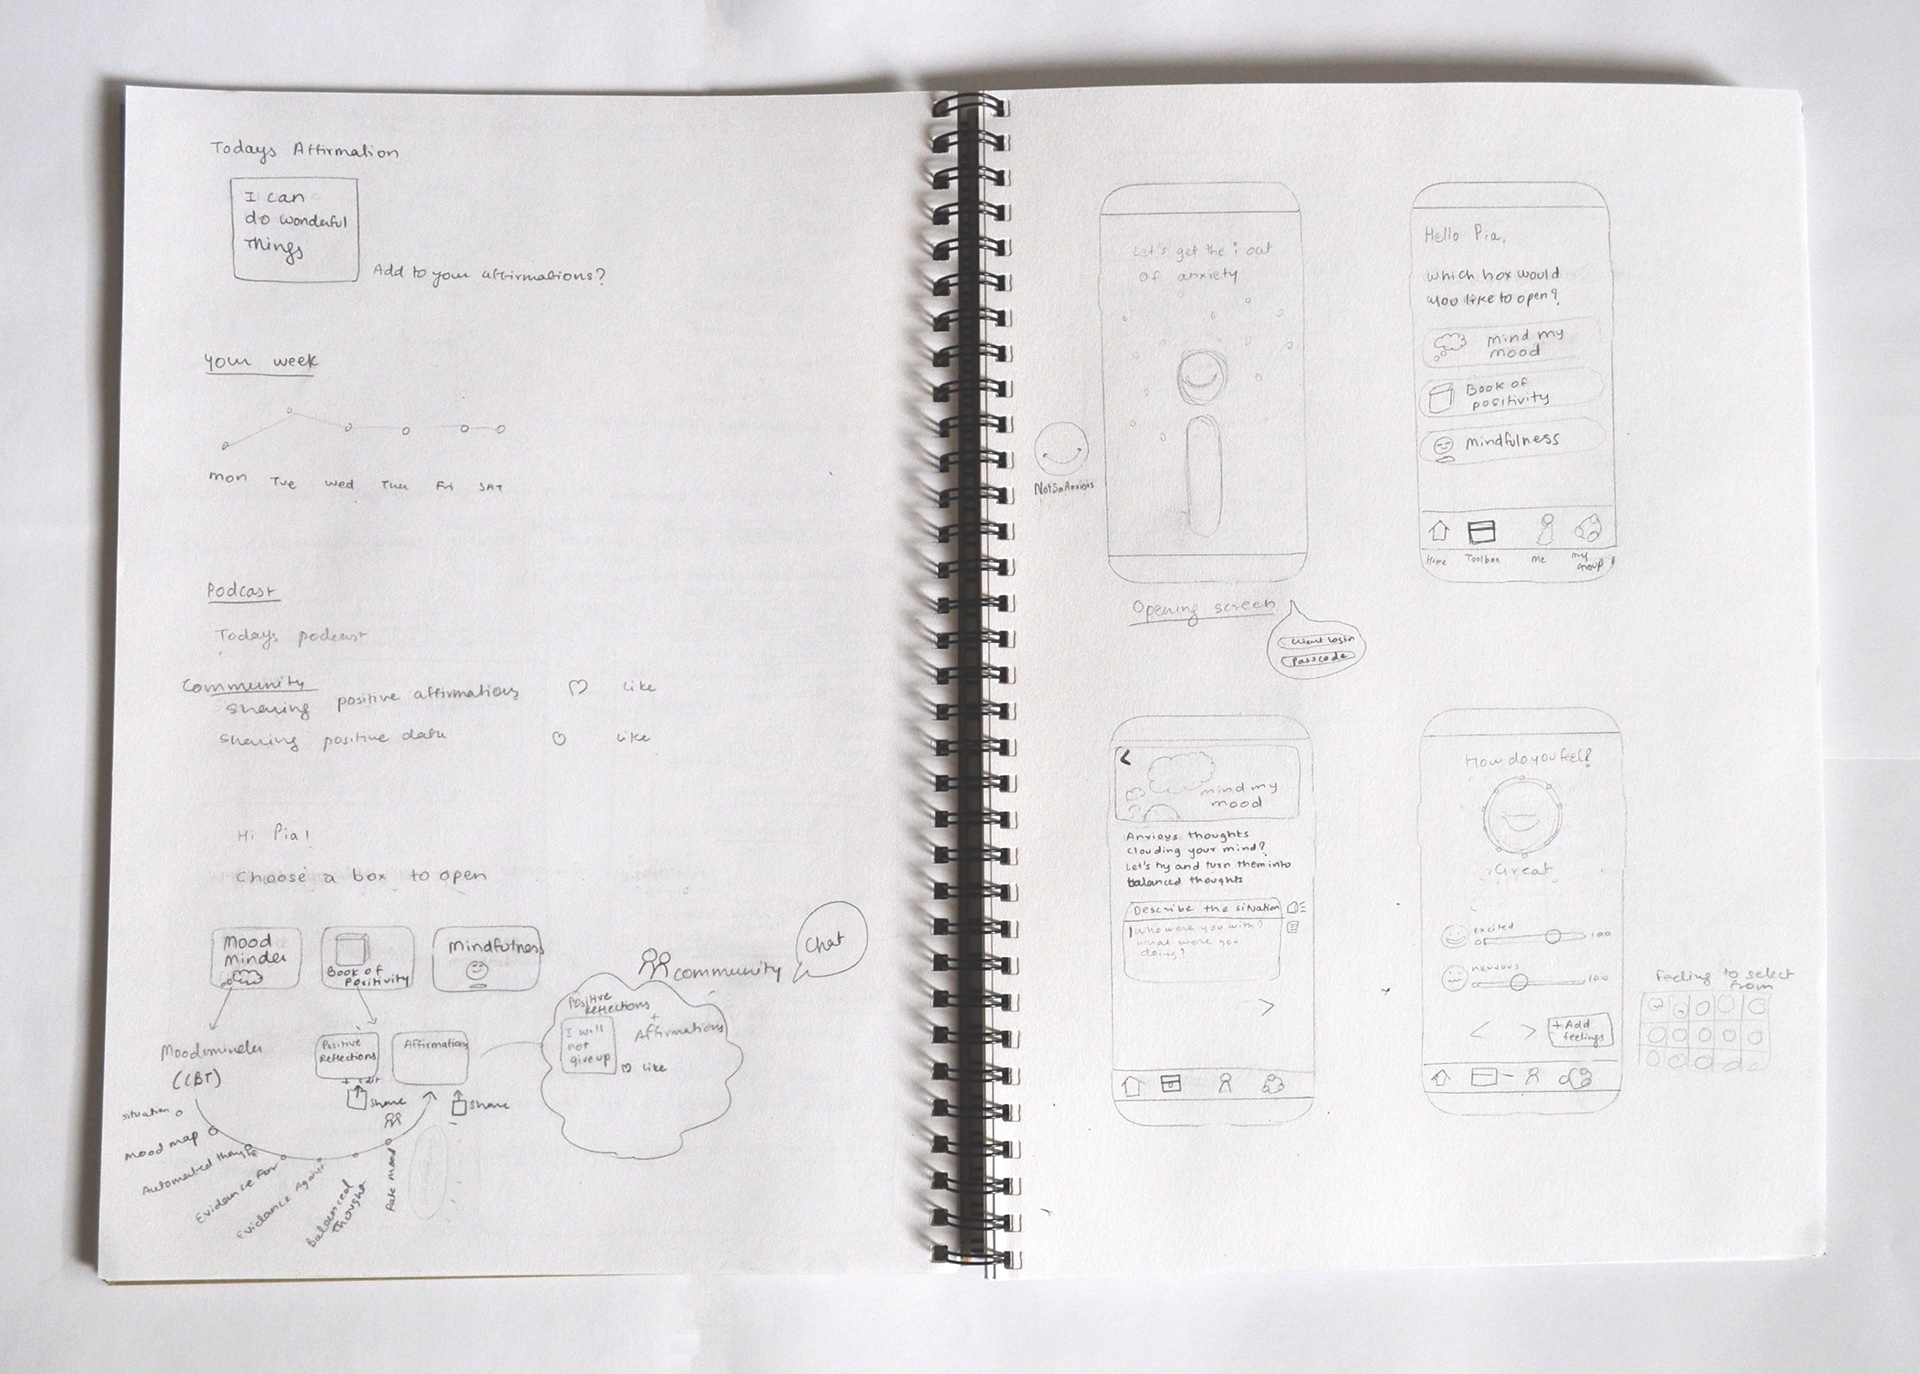 Todays Affirmation
I can
do wonderful
Things
Add to your affirmations?
Your week
mon Tue wed Thu Fri SAT
Podcast
Todays podcast
Community
sharing positive affirmations like
sharing positive data like
Hi Pia!
Choose a box to open
Mood
Minder
Book of
Positivity
Mindfulness
community
Chat
Positive
Reflections
+
Affirmations
I will
not
give up
like
Moodminder
(CBT)
Positive
Reflections
Affirmations
share
share
situation
Mood map
Automated
Evidence For
Evidence Against
Balanced
Thought
Rate mood
Let's get the i out
of anxiety
NotSoAnxious
Opening screen
Client Login
Passcode
Hello Pia,
Which box would
you like to open?
mind my
mood
Book of
positivity
mindfulness
Home Toolbox Me my
group
mind my
mood
Anxious thoughts
clouding your mind?
Let's try and turn them into
balanced thoughts
Describe the situation
Who were you with?
what were you
doing?
How do you feel?
Great
excited
0 100
nervous
100
+ Add
feelings
feeling to select
from